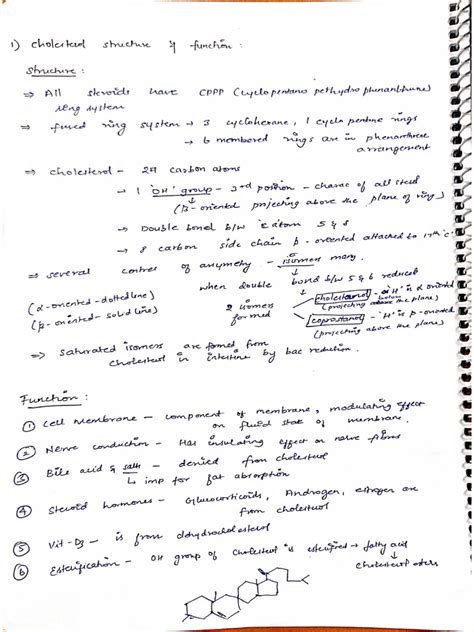 1) Cholesterol structure & function :
Structure :
⇒ All steroids have CPPP (cyclopentano perhydro phenanthrene)
ring system
⇒ fused ring system → 3 cyclohexane, 1 cyclo pentane rings
→ 6 membered rings are in phenanthrene
arrangement
⇒ cholesterol - 27 carbon atoms
→ 1 'OH' group - 3rd position - charac of all steroid
(β-oriented projecting above the plane of ring)
→ Double bond b/w C atom 5 & 6
→ 8 carbon side chain β-oriented attached to 17th 'C'
⇒ several centres of asymmetry - isomers many.
when double bond b/w 5 & 6 reduced
(α-oriented - dotted line)
(β-oriented - solid line)
2 isomers
formed
cholestanol - 'H' is α oriented
(projecting below the plane)
coprostanol - 'H' is β-oriented
(projecting above the plane)
⇒ saturated isomers are formed from
cholesterol in intestine by bac reduction.
Function :
① Cell Membrane - component of membrane, modulating effect
on fluid state of membrane.
② Nerve conduction - Has insulating effect on nerve fibres
③ Bile acid & salts - derived from cholesterol
↳ imp for fat absorption
④ Steroid hormones - Glucocorticoids, Androgen, estrogen are
from cholesterol
⑤ Vit-D3 - is from dehydrocholesterol
⑥ Esterification - OH group of cholesterol is esterified → fatty acid
↓
cholesterol esters